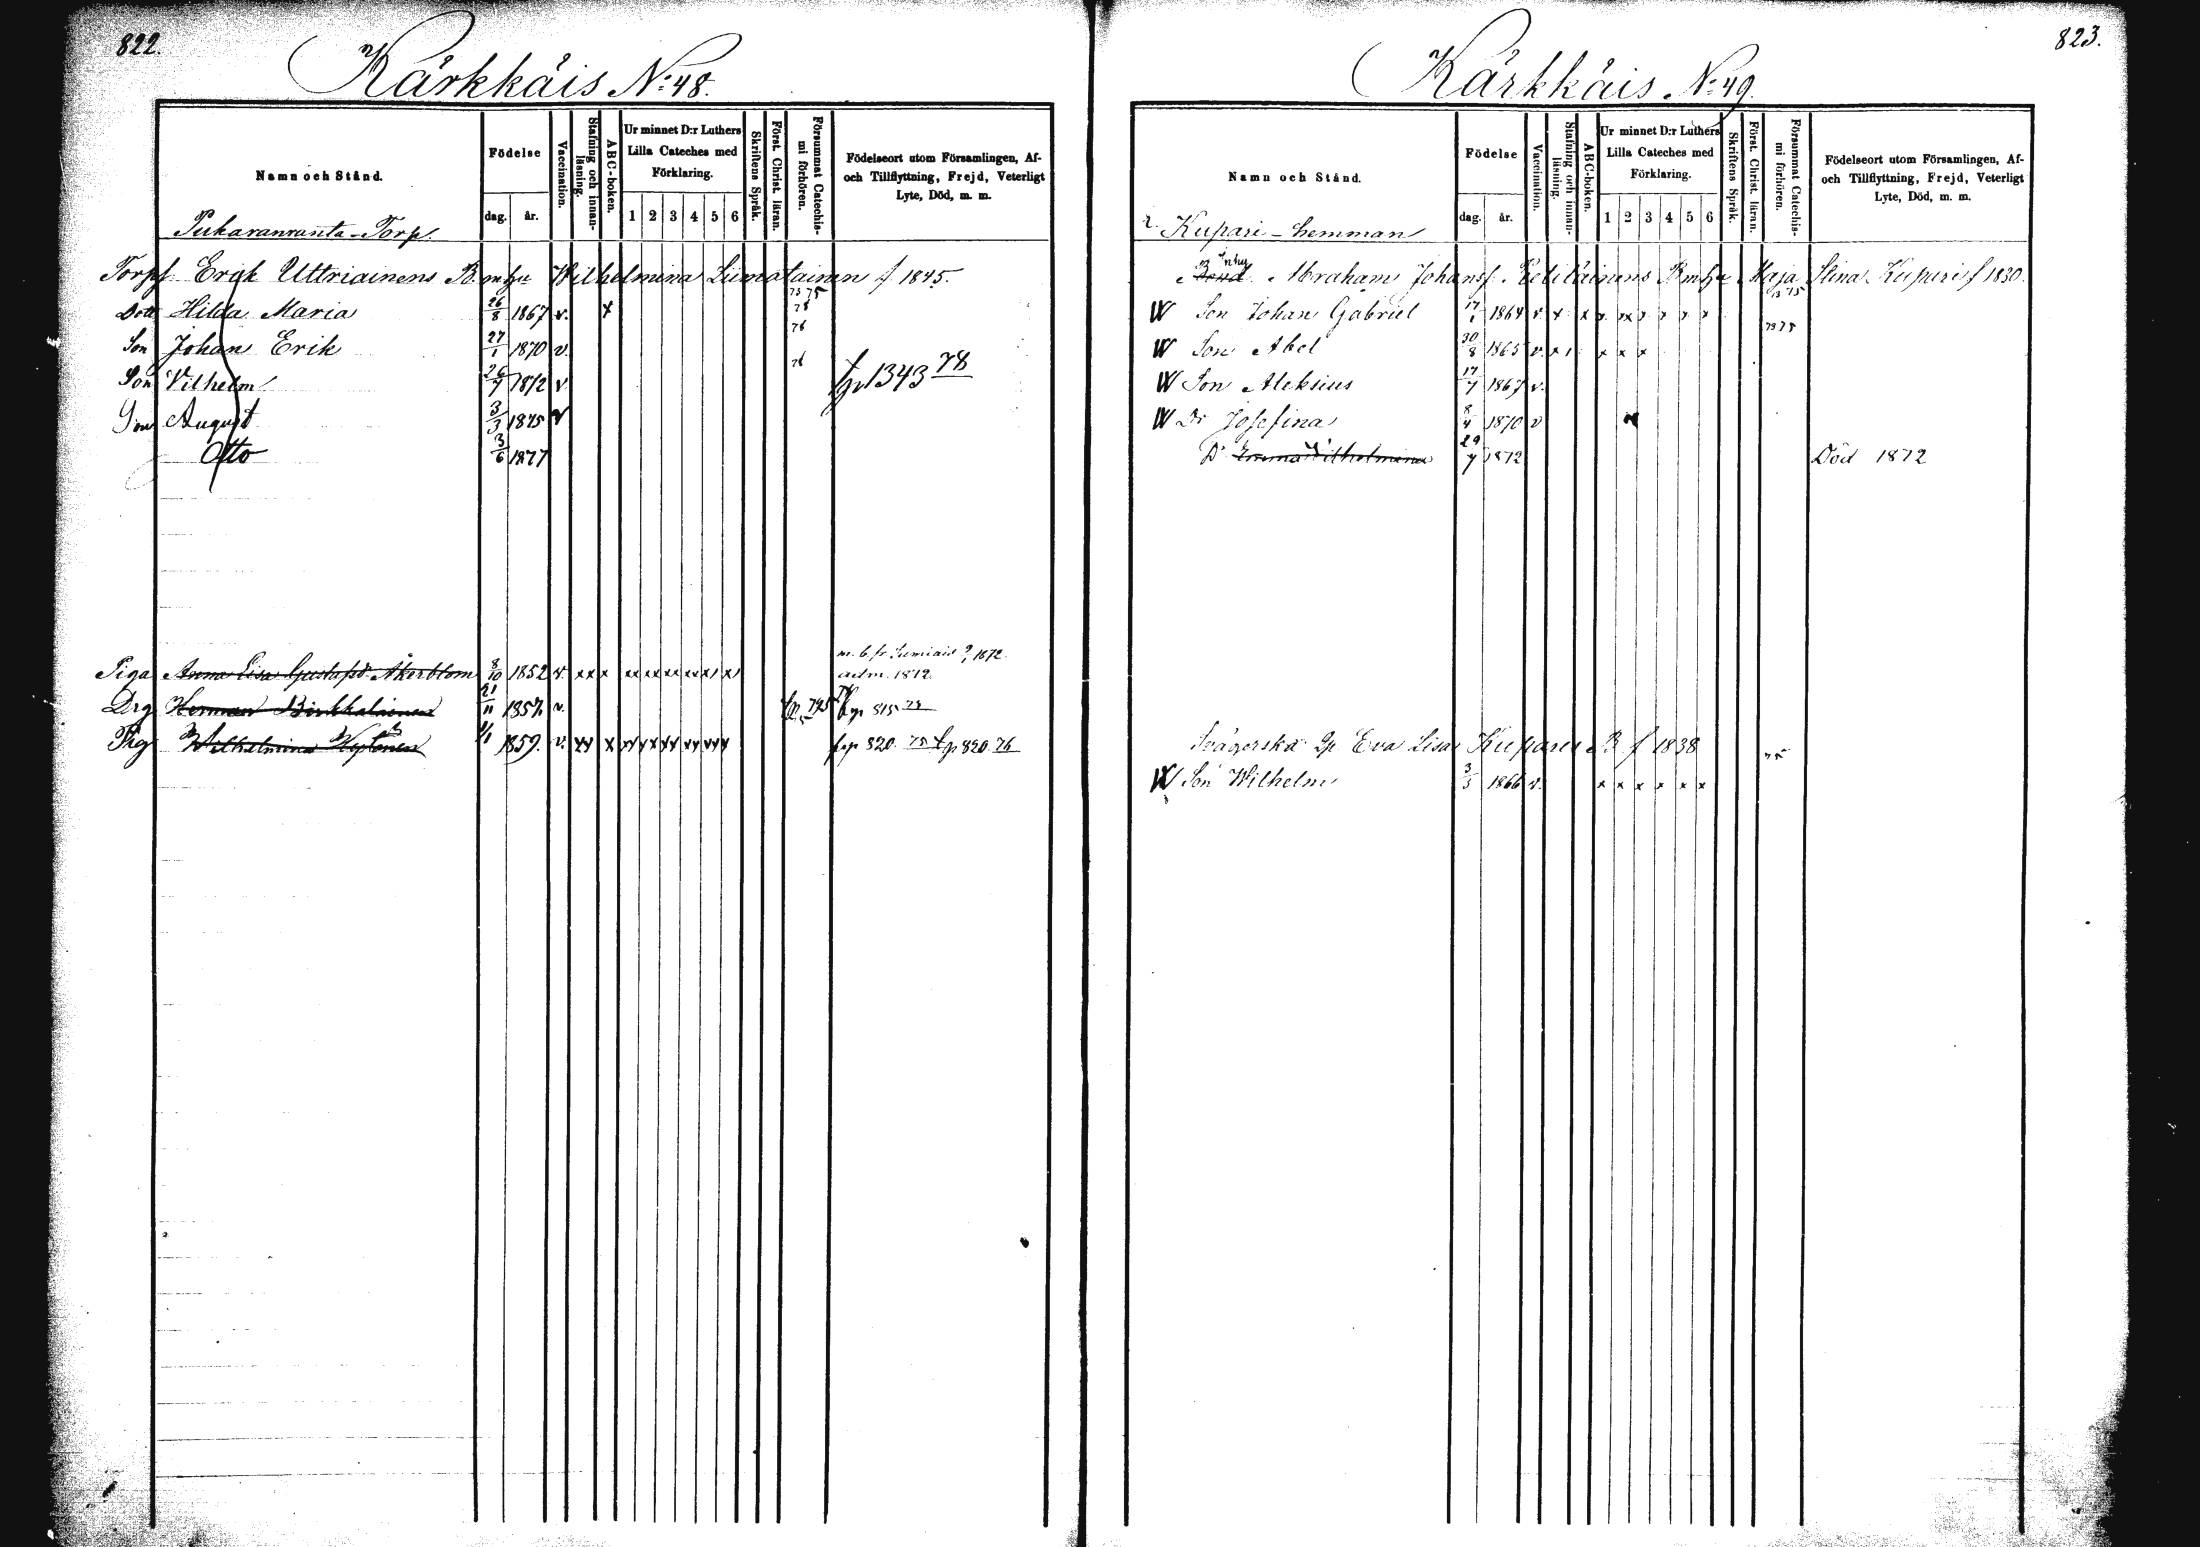 822.
Kärkkäis No: 48.
Namn och Stånd.
Födelse
dag.
år.
Vaccination.
Stafning och innan-
läsning.
ABC-boken.
Ur minnet D:r Luthers
Lilla Cateches med
Förklaring.
1 2 3 4 5 6
Skriftens Språk.
Först. Christ. läran.
Försummat Catechis-
mi förhören.
Födelseort utom Församlingen, Af-
och Tillflyttning, Frejd, Veterligt
Lyte, Död, m. m.
Pukaranranta-Torp.
Torpf Erik Uttriainens B. m hu Wilhelmina Liimatainen f 1845.
73 75
Dott Hilda Maria 26/8 1867 v. x 78
76
Son Johan Erik 27/1 1870 v.
76
Son Vilhelm 26/7 1872 v. fp 1343 78
Son August 3/3 1875 v
Otto 3/6 1877
1872.
Piga Anna Lisa Gustafsd. Åkerblom 8/10 1852 v. xx x xx xx xx xx x x adm. 1872
Drg Herman Birkkalainen 21/11 1857 v. 795 815
Pig Wilhelmina Hytönen 1/1 1859. v. xx x xx xx xx xx xx frp 820 75 fp 820 76
823.
Kärkkäis No: 49.
Namn och Stånd.
Födelse
dag.
år.
Vaccination.
Stafning och innan-
läsning.
ABC-boken.
Ur minnet D:r Luthers
Lilla Cateches med
Förklaring.
1 2 3 4 5 6
Skriftens Språk.
Först. Christ. läran.
Försummat Catechis-
mi förhören.
Födelseort utom Församlingen, Af-
och Tillflyttning, Frejd, Veterligt
Lyte, Död, m. m.
Kupari-hemman
Inhy
Bond. Abraham Johansf. B m hu Maja Stina Kupari f 1830.
73 75
W Son Johan Gabriel 17/1 1864 v. x x x xx x x x x
73 75
W Son Abel 30/8 1865 v. x x x x
W Son Aleksius 17/7 1867 v.
W Dr Josefina 8/4 1870 v
D. Emma Vilhelmina 29/7 1872 Död 1872
Svägerska Eva Lisa Kupari f 1838
75
W Son Wilhelm 3/3 1866 v. x x x x x x